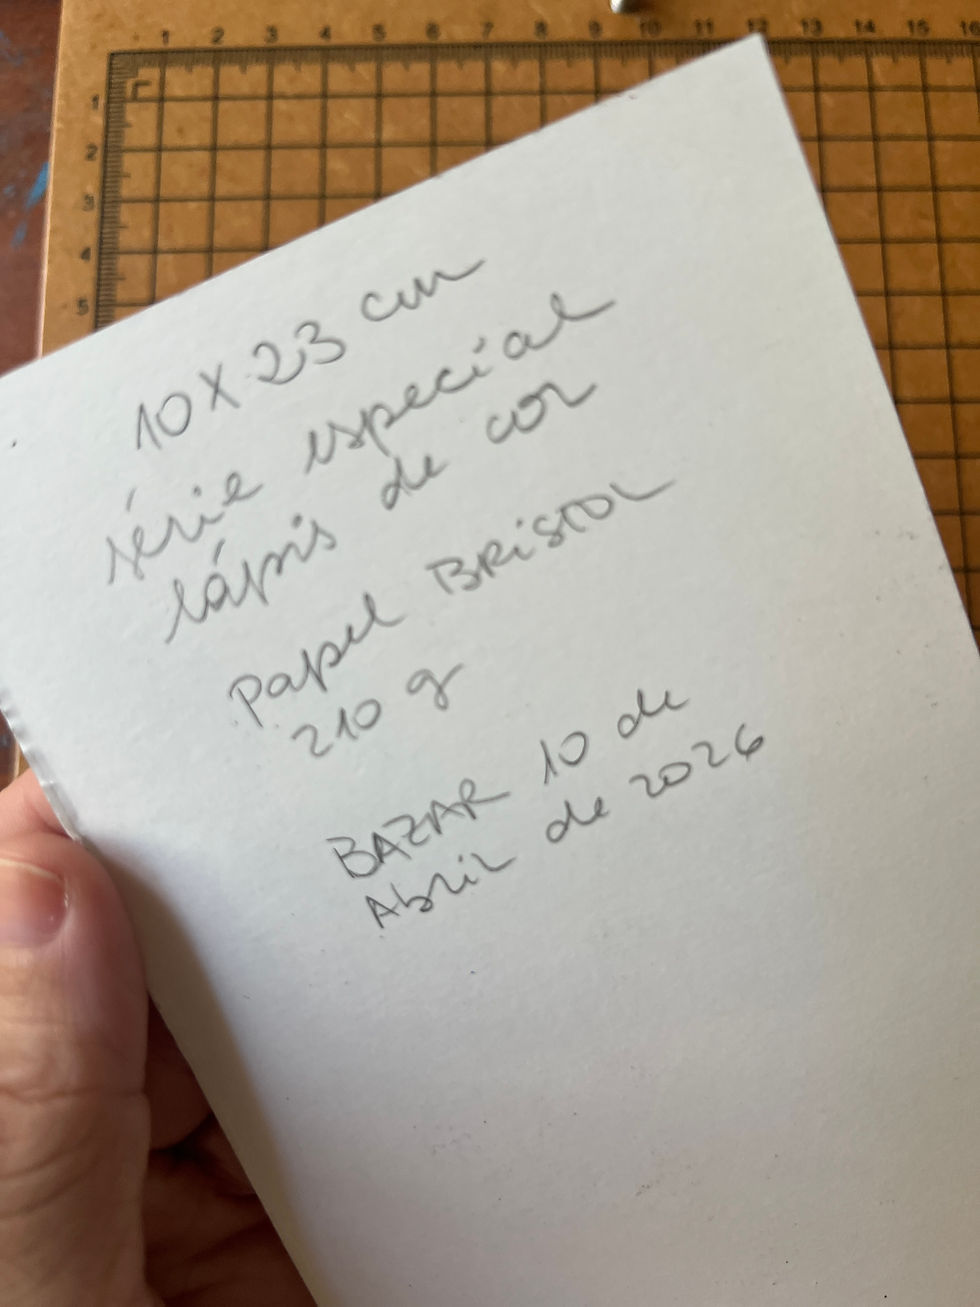 1 2 3 4 5 6 7 8 9 10 11 12 13 14 15 16
1
2
3
4
5
10 X 23 cm
série especial
lápis de cor
Papel BRISTOL
210 g
BAZAR 10 de
Abril de 2026